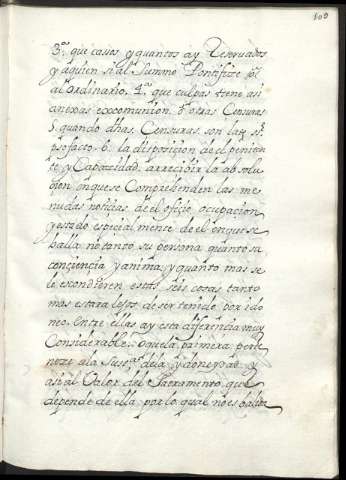 3º. que casos y quantos ay Reservados
y aquien si al Summo Pontifice ôl
al ordinario. 4º. que culpas tiene asi
anexas excomunion, ô otras Censuras
5. quando dhas. Censuras, son latę
psofacto. 6. la disposicion de el peniten
te, y Capacidad, arrecivir la absolu
cion en que se Comprehenden las me
nudas noticias, de el oficio, ocupacion,
y estado espicial mente de el en que se
halla no tanto, su persona, quanto su
conciencia y anima, y quanto mas se
le escondieren estas seis cosas tanto
mas estara lejos de ser tenido por ido
neo. Entre ellas ay esta diferencia muy
Considerable: que la primera perte
neze ala Sust.ª dela y
asi al Valor del Sacramento, que
depende de ella, por lo qual no es balido